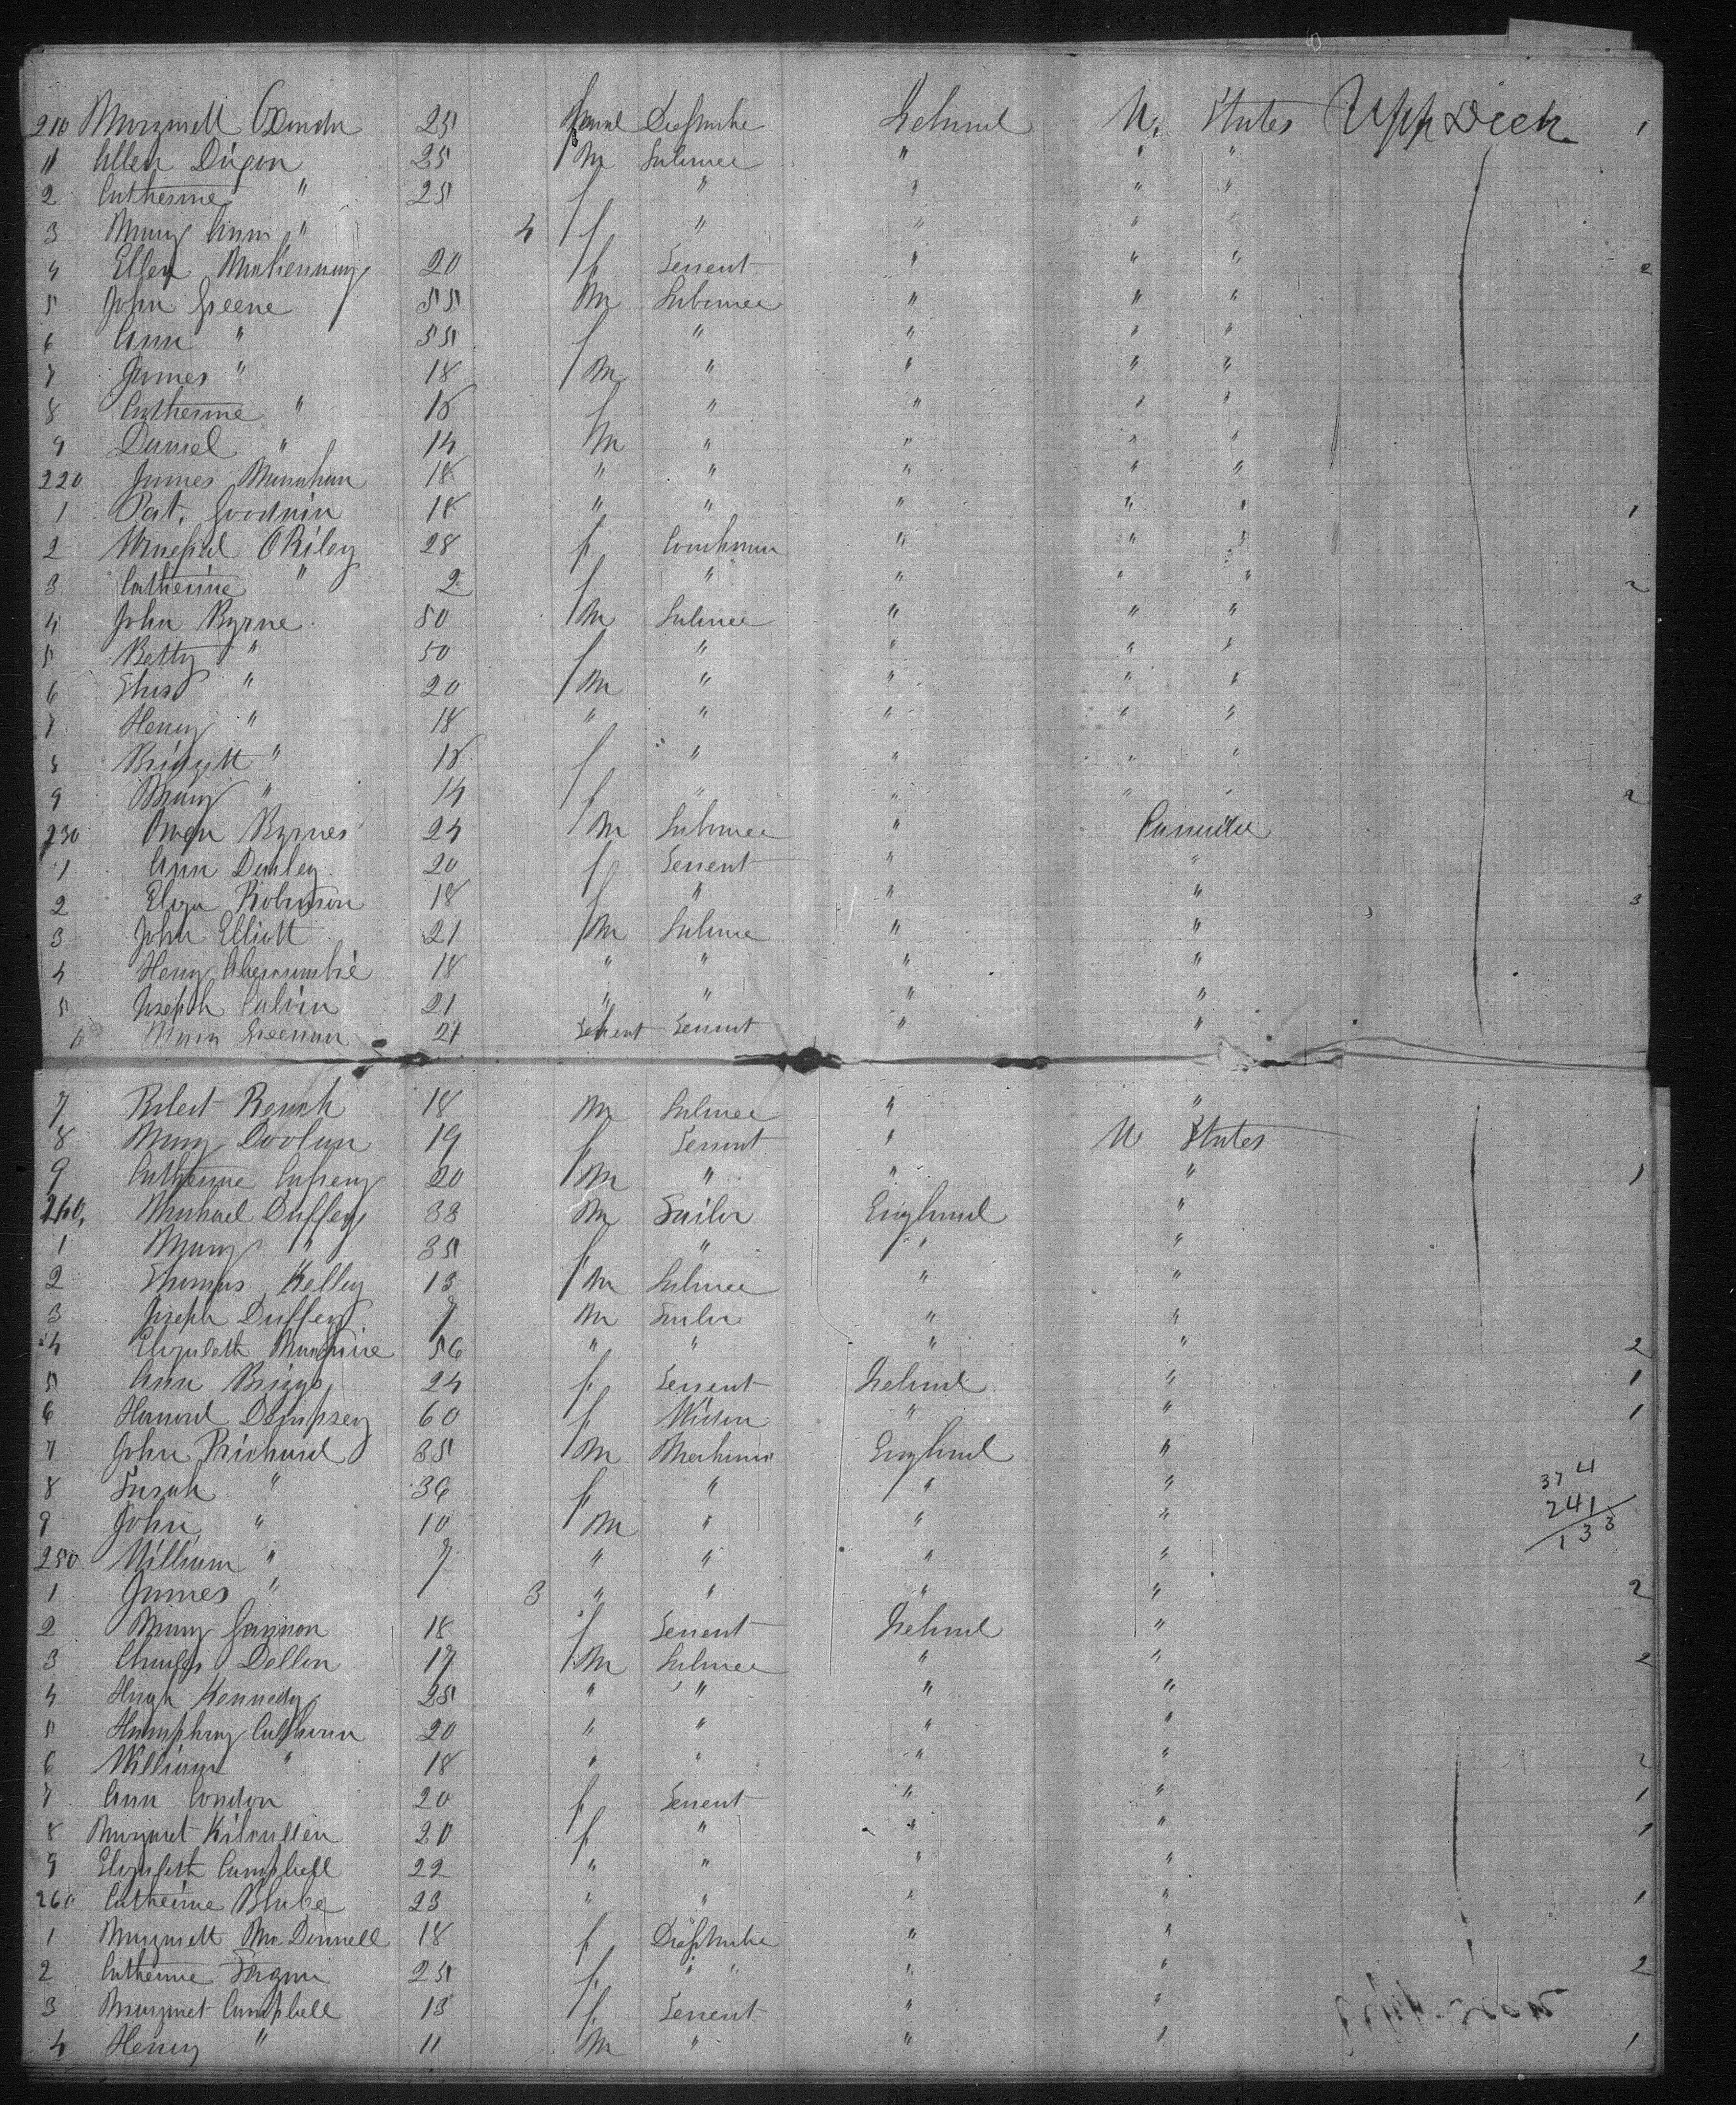 210 Margarett Condon 25 Female Dressmake Ireland U. States Upp Deck 1
11 Allen Dugan 25 M Labourer " " "
2 Catherine " 25 f " " " "
3 Mary Ann " 4 f " " "
4 Ellen 20 f Servent " " " 2
5 John Greene 55 M Labourer " " "
6 Ann " 55 f " " " "
7 James " 18 M " " " "
8 Catherine " 16 f " " " "
9 Daniel " 14 M " " " "
220 James Monahan 18 " " " " "
1 Pat. Goodwin 18 " " " " " 1
2 Winefrid O Riley 28 f Coachman " " "
3 Catherine " 2 f " " " " 2
4 John Byrne 50 M Labourer " " "
5 Betty " 50 f " " " "
6 Thos " 20 M " " " "
7 Henry " 18 " " " " "
8 Bridgett " 16 f " " " "
9 Mary " 14 f " " " " 2
230 Owen Byrnes 24 M Labourer " Cannada
1 Ann Danley 20 f Servent " "
2 Eliza Robinson 18 f " " " 3
3 John Elliott 21 M Labourer " "
4 Henry Abercrumbie 18 " " " "
5 Joseph Calvin 21 " " " "
6 Mary Greenan 21 Servent Servent " "
7 Robert Roark 18 M Labourer " "
8 Mary Doolan 19 f Servent " U States
9 Catherine Cafreny 20 M " " " 1
240. Michael Duffey 38 M Tailor England "
1 Mary " 35 f " " "
2 Thomas Kelley 13 M Labourer " "
3 Joseph Duffey 7 M Tailor " "
4 Elizabeth 56 " " " " 2
5 Ann Briggs 24 f Servent Ireland " 1
6 Honord Dempsey 60 f Widow " " 1
7 John Prichard 35 M Mechanic England "
8 Sarah " 36 f " " "
9 John " 10 M " " "
374
241
133
250 William " 7 " " " "
1 James " 3 " " " " 2
2 Mary Gannon 18 f Servent Ireland "
3 Charles Dellon 17 M Labourer " " 2
4 Hugh Kennedy 25 " " " "
5 Humphrey Calhoun 20 " " " "
6 William " 18 " " " " 2
7 Ann Condon 20 f Servent " " 1
8 Margaret Kilcullen 20 f " " " 1
9 Elizabeth Campbell 22 " " " "
260 Catherine Blake 23 " " " " 1
1 Margarett Mc Donnell 18 f Dressmake " "
2 Catherine Fagan 25 f " " " " 2
3 Margaret Campbell 13 f Servent " "
4 Henry " 11 M " " " 1